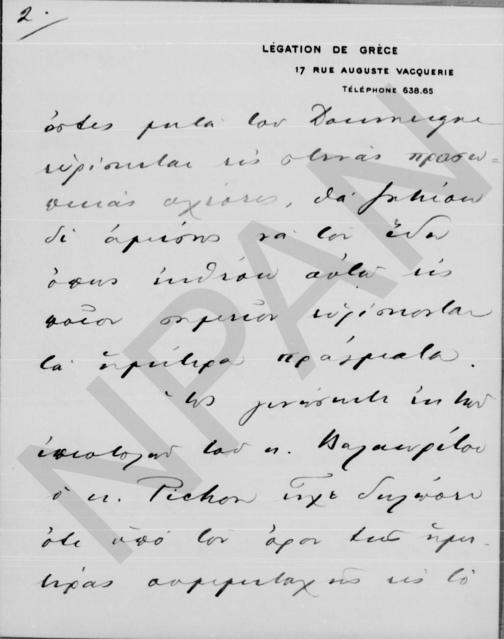 2.
LÉGATION DE GRÈCE
17 RUE AUGUSTE VACQUERIE
TÉLÉPHONE 638.65
ὅστις μετὰ τοῦ Doumergue
εὑρίσκεται εἰς στενὰς προσω-
πικὰς σχέσεις, θὰ ζητήσω
δὲ ἀμέσως νὰ τὸν ἴδω
ὅπως ἐκθέσω αὐτῷ εἰς
ποῖον σημεῖον εὑρίσκονται
τὰ ἡμέτερα πράγματα.
Ὡς γινώσκετε ἐκ τῶν
ἐπιστολῶν τοῦ κ. Βαλαωρίτου
ὁ κ. Pichon εἶχε δηλώσει
ὅτι ὑπὸ τὸν ὅρον τῆς ἡμε-
τέρας συμμετοχῆς εἰς τὸ
NPAN